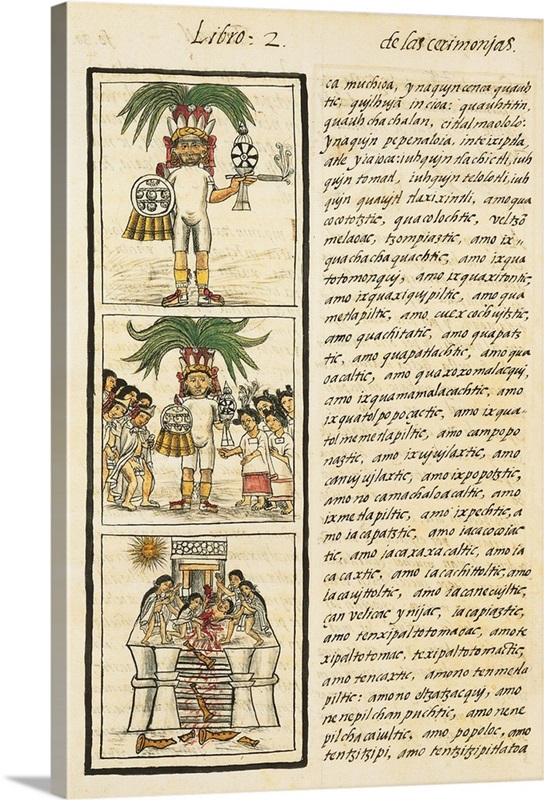 Libro: 2.
de las cerimonjas.
ca muchioa, ynaqujn cenca quauh
tic, qujlhuja incioa: quauhtitin,
quauhchachalan, citlalmaololo:
ynaqujn pepenaloia, inteixiptla
atle yiaioca: iuhqujn tlachictli, iuh
qujn tomatl, iuhqujn telolotli, iuh
qujn quavitl tlaxixintli, amo qua
cocototztic, quacolochtic, vel
melaoac, tzompiaztic, amo ix
quachachaquachtic, amo ixqua
totomonquj, amo ixquaxitontic,
amo ixquaxiqujpiltic, amo qua
metlapiltic, amo cuexcochujtztic,
amo quachitatic, amo quapatz
tic, amo quapatlachtic, amo qua
oacaltic, amo quaxoxomalacquj,
amo ixquamamalacachtic, amo
ixquatolpopoçactic, amo ixqua
tolmemetlapiltic, amo campopo
naztic, amo ixujujlaxtic, amo
canujujlaxtic, amo ixpopotztic,
amo no camachaloacaltic, amo
ixmetlapiltic, amo ixpechtic, a
mo iacapatztic, amo iacacocoiac
tic, amo iacaxaxacaltic, amo ia
cacaxtic, amo iacachittoltic, amo
iacaujttoltic, amo iacanecujltic,
çan velicac ynijac, iacapiaztic,
amo tenxipaltotomaoac, amo te
xipaltotomac, texipaltotomactic,
amo tencaxtic, amono tenmetla
piltic: amono eltzatzacquj, amo
nenepilchanpuchtic, amo nene
pilchacaiultic, amo popoloc, amo
tentzitzipi, amo tentzitzipitlatoa